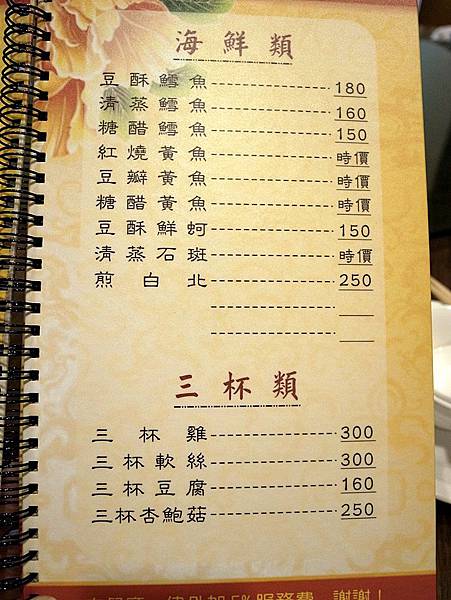 海鮮類
豆酥鱈魚 180
清蒸鱈魚 160
糖醋鱈魚 150
紅燒黃魚 時價
豆瓣黃魚 時價
糖醋黃魚 時價
豆酥鮮蚵 150
清蒸石斑 時價
煎白北 250
三杯類
三杯雞 300
三杯軟絲 300
三杯豆腐 160
三杯杏鮑菇 250
加5%服務費，謝謝！